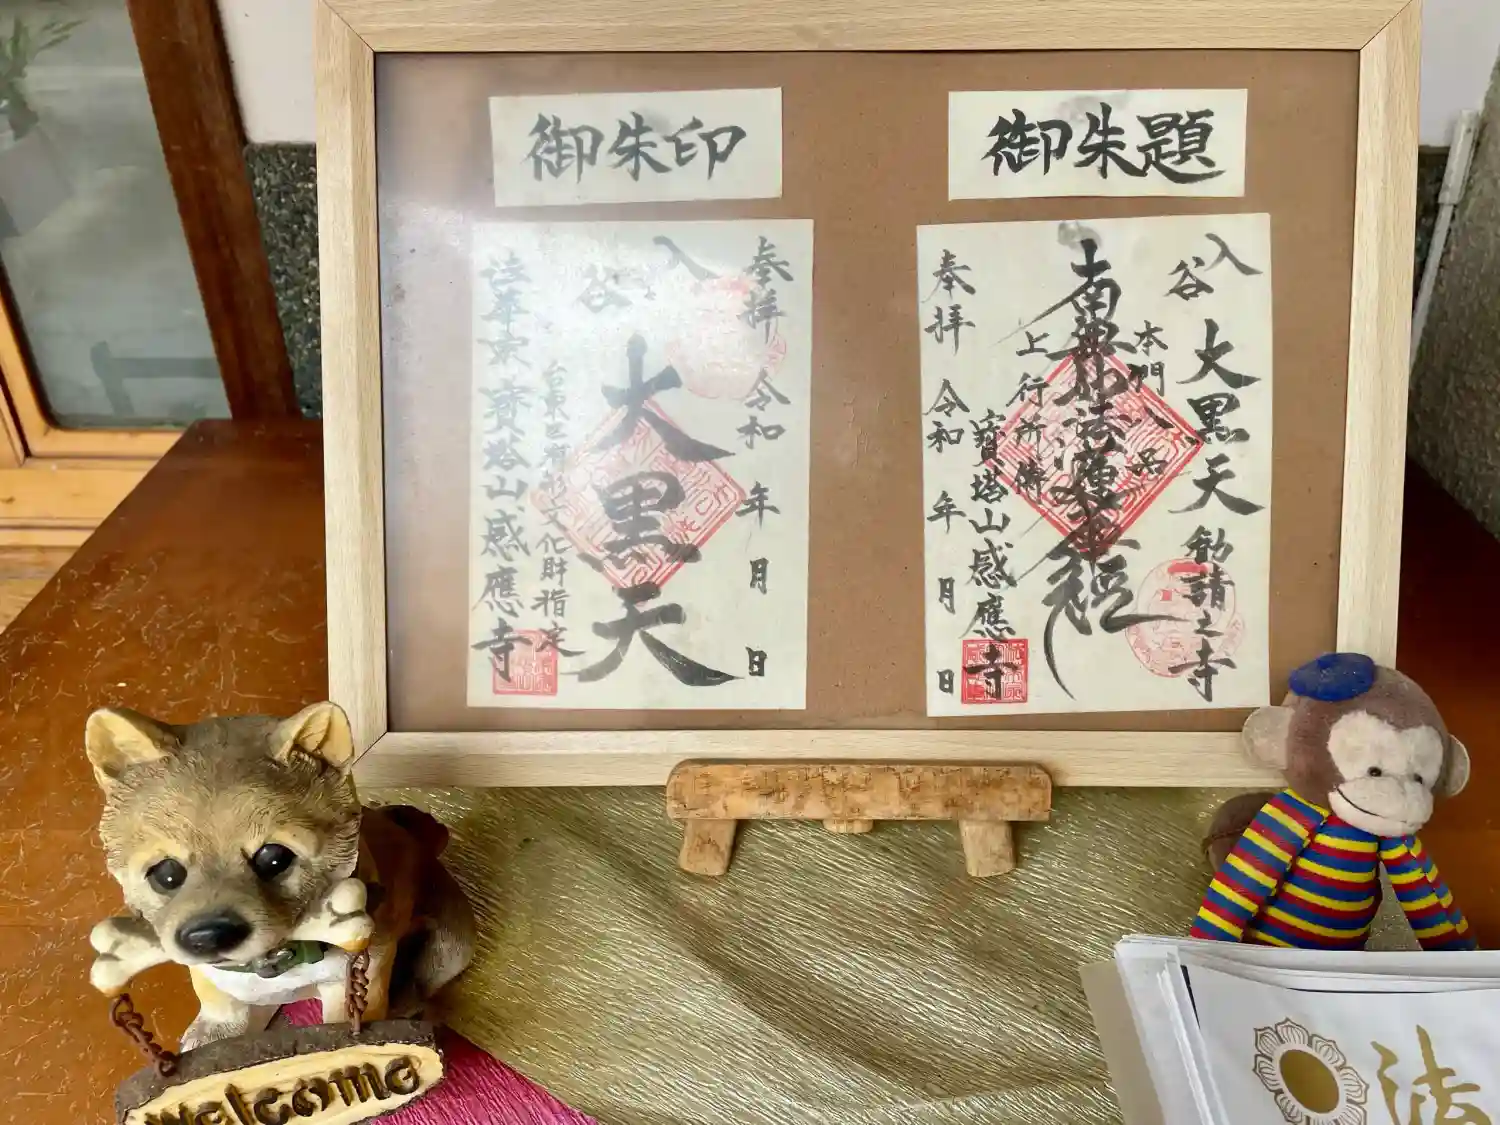 御朱印
奉拝 令和 年 月 日
入谷
大黒天
台東区有形文化財指定
法華宗寶塔山感應寺
御朱題
入谷
大黒天勧請之寺
本門八品
南無妙法蓮華経
上行所傳
寶塔山感應寺
奉拝 令和 年 月 日
Welcome
法